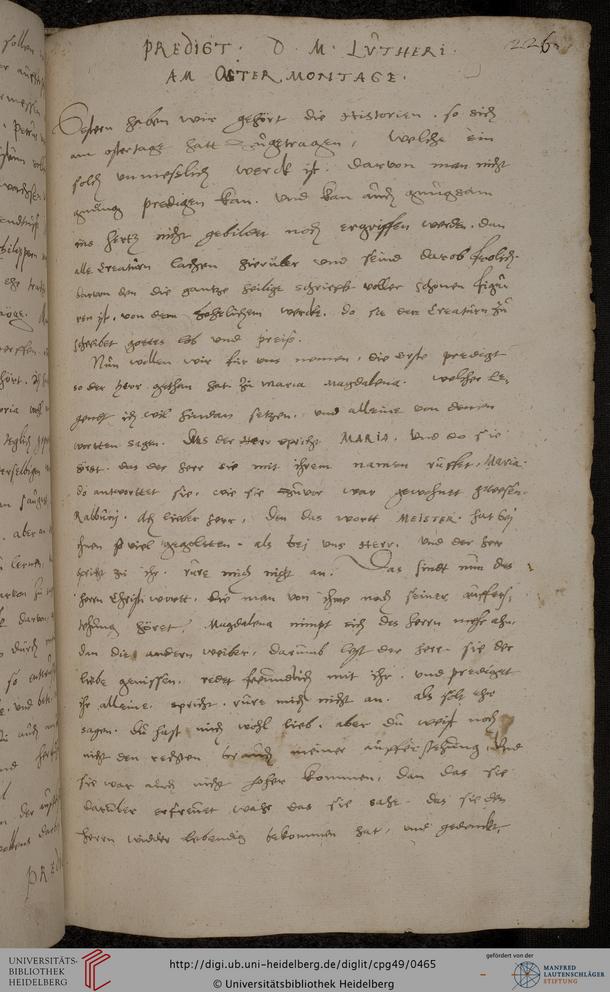 PREDIGT. D. M. LŮTHERI. 226
AM OSTER MONTAGE.
Gestern haben wir gehört die Historien, so sich
am ostertage hatt zugetragen, welche ein
solch unmeslich werck ist, darvon man nicht
gnůug predigen kan. Und kan auch gnůgsam
ins hertz nicht gebildet noch ergriffen werden. dan
alle Creaturn lachen hierüber und seind darob frolich.
darvon den die gantze heilige schriefft voller schonen figu
ren ist, von dem herlichem wercke, do sie den Creaturn zu
schreibet gottes lob und preiß.
Nůn wollen wir für uns nemen, die erste predigt
so der Herr gethan hat zu Maria Magdalena. welcher Le,
gendt ich wil hindan setzen, und alleine von denen
wortten sagen. Das der Herr spricht MARIA. Und do sie
höret, das der herr sie mit ihrem namen rüffet, Maria.
do antworttet sie, wie sie zůvor war gewohnet gewesen.
Rabbuni. Ah lieber herr, den das wortt MEISTER. hat bej
ihnen so viel gegoltten, als bej uns Herr. Und der herr
spricht zu ihr. rüre mich nicht an. Das sindt nun des
herrn Christi wortt, die man von ihme nach seiner aufferf,
tehung höret, Magdalena nimpt sich des herrn mehr ahn,
dan die andern weiber, darumb lest der herr sie der
liebe genissen, redet freundlich mit ihr, und prediget
ihr alleine, spricht. rüre mich nicht an. als solt ehr
sagen. du hast mich wohl lieb, aber du weist noch
nicht den rechten brauch meiner aufferstehung, Und
sie war auch nicht hoher kommen, dan das sie
darüber erfreuet wahr das sie sahe, das sie den
herrn wieder lebendig bekommen hat, und gedenckt,
PRED
UNIVERSITÄTS-
BIBLIOTHEK
HEIDELBERG
http://digi.ub.uni-heidelberg.de/diglit/cpg49/0465
© Universitätsbibliothek Heidelberg
gefördert von der
MANFRED
LAUTENSCHLÄGER
STIFTUNG